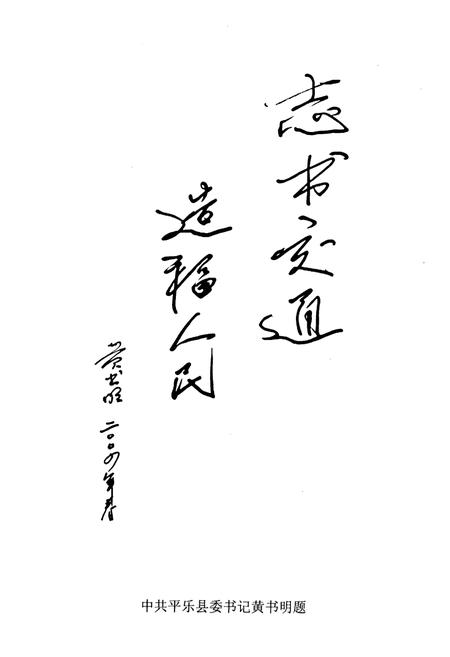 志书交通
造福人民
黄书明
二〇〇四年春
中共平乐县委书记黄书明题